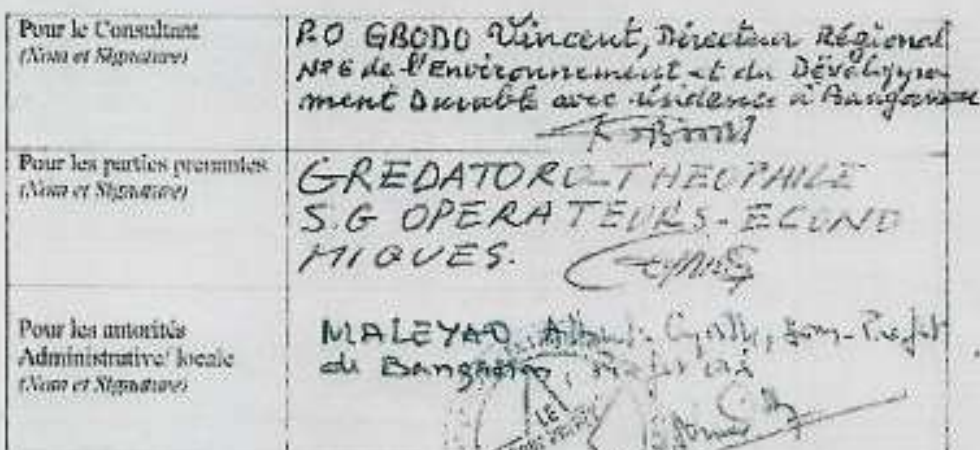 Pour le Consultant
(Nom et Signature)
P.O GBODO Vincent, Directeur Régional
N°6 de l'Environnement et du Développe
ment Durable avec résidence à Bangassou
Pour les parties prenantes
(Nom et Signature)
GREDATORO THEOPHILE
S.G OPERATEURS-ECONO
MIQUES.
Pour les autorités
Administrative/ locale
(Nom et Signature)
MALEYAO, Sous-Préfet
de Bangassou,
LE